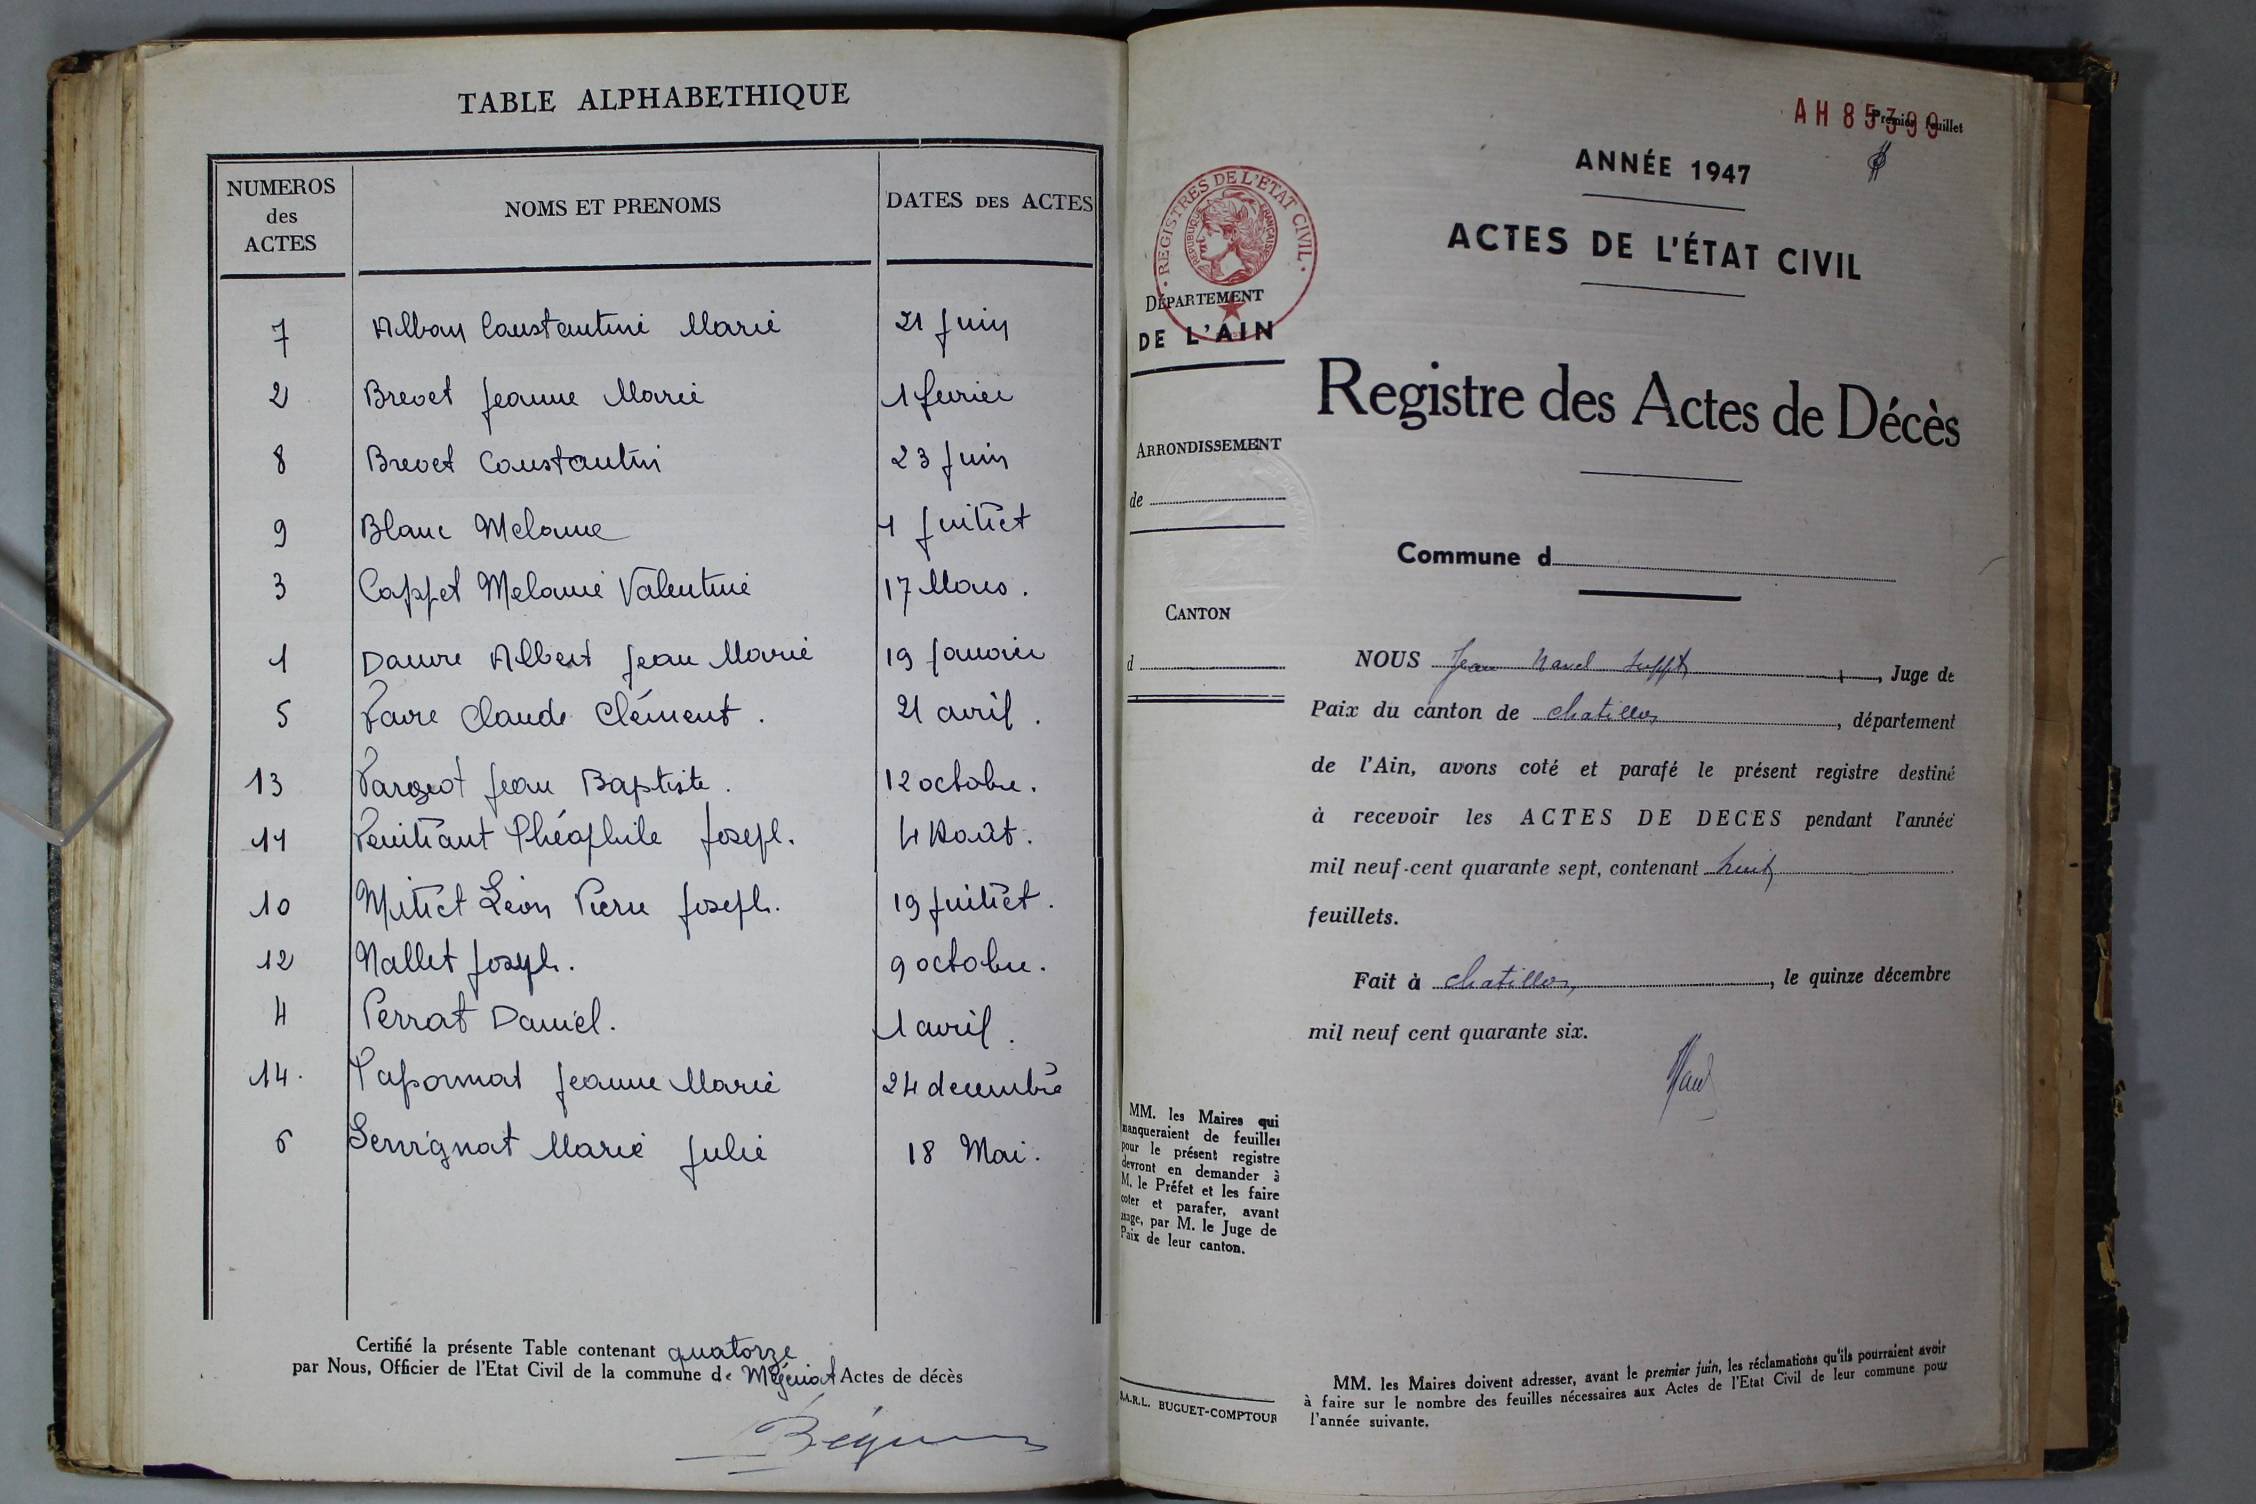 TABLE ALPHABETHIQUE
NUMEROS des ACTES NOMS ET PRENOMS DATES DES ACTES
7 Alban Constantini Marie 21 Juin
2 Brevet Jeanne Marie 1 fevrier
8 Brevet Constantin 23 Juin
9 Blanc Melanie 4 Juillet
3 Cappet Melanie Valentine 17 Mars.
1 Dauvre Albert Jean Marie 19 Janvier
5 Favre Claude Clément. 21 avril.
13 Fargeot Jean Baptiste. 12 octobre.
11 Théophile Joseph. 4 Août.
10 Millet Léon Pierre Joseph. 19 Juillet.
12 Nallet Joseph. 9 octobre.
4 Perrat Daniel. 1 avril.
14. Taponnat Jeanne Marie 24 decembre
6 Servignat Marie Julie 18 Mai.
Certifié la présente Table contenant quatorze
par Nous, Officier de l'Etat Civil de la commune de Actes de décès
AH 85399
Premier feuillet
ANNÉE 1947
REGISTRES DE L'ÉTAT CIVIL
RÉPUBLIQUE FRANÇAISE
ACTES DE L'ÉTAT CIVIL
DÉPARTEMENT
DE L'AIN
Registre des Actes de Décès
ARRONDISSEMENT
de
Commune d
CANTON
d
NOUS Jean Navel suppt, Juge de
Paix du canton de chatillon, département
de l'Ain, avons coté et parafé le présent registre destiné
à recevoir les ACTES DE DECES pendant l'année
mil neuf-cent quarante sept, contenant huit
feuillets.
Fait à chatillon, le quinze décembre
mil neuf cent quarante six.
MM. les Maires qui
manqueraient de feuilles
pour le présent registre
devront en demander à
M. le Préfet et les faire
coter et parafer, avant
usage, par M. le Juge de
Paix de leur canton.
S.A.R.L. BUGUET-COMPTOUR
MM. les Maires doivent adresser, avant le premier juin, les réclamations qu'ils pourraient avoir
à faire sur le nombre des feuilles nécessaires aux Actes de l'Etat Civil de leur commune pour
l'année suivante.